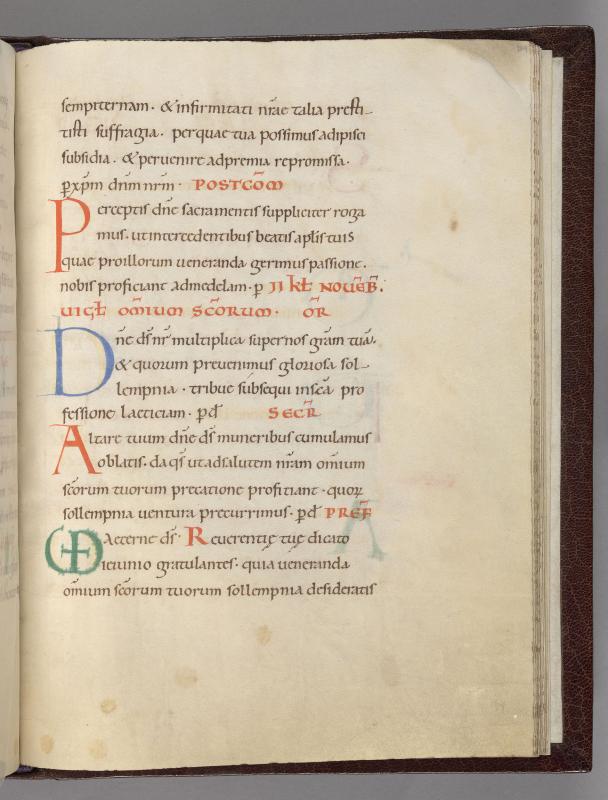 sempiternam. & infirmitati nr̄ae talia presti-
tisti suffragia. per quae tua possimus adipisci
subsidia. & peruenire ad premia repromissa.
p̱ xp̄m dn̄m nr̄m. POSTCŌM
Perceptis dn̄e sacramentis suppliciter roga
mus. ut intercedentibus beatis ap̄lis tuis
quae pro illorum ueneranda gerimus passione.
nobis proficiant ad medelam. p̱ II kł NOUEB̄.
UIGł OM̄IUM SC̄ORUM. OR̄
Dn̄e ds̄ nr̄ multiplica super nos gr̄am tuā.
& quorum preuenimus gloriosa sol-
lempnia. tribue subsequi in sc̄a pro
fessione laeticiam. p̱ d̄ SECR̄
Altare tuum dn̄e ds̄ muneribus cumulamus
oblatis. da qs̄ ut ad salutem nr̄am om̄ium
sc̄orum tuorum precatione proficiant. quoꝝ
sollempnia uentura precurrimus. p̱ d̄ PREF̄
UD Aeterne ds̄. Reuerentię tuę dicato
ieiunio gratulantes. quia ueneranda
om̄ium sc̄orum tuorum sollempnia desideratis